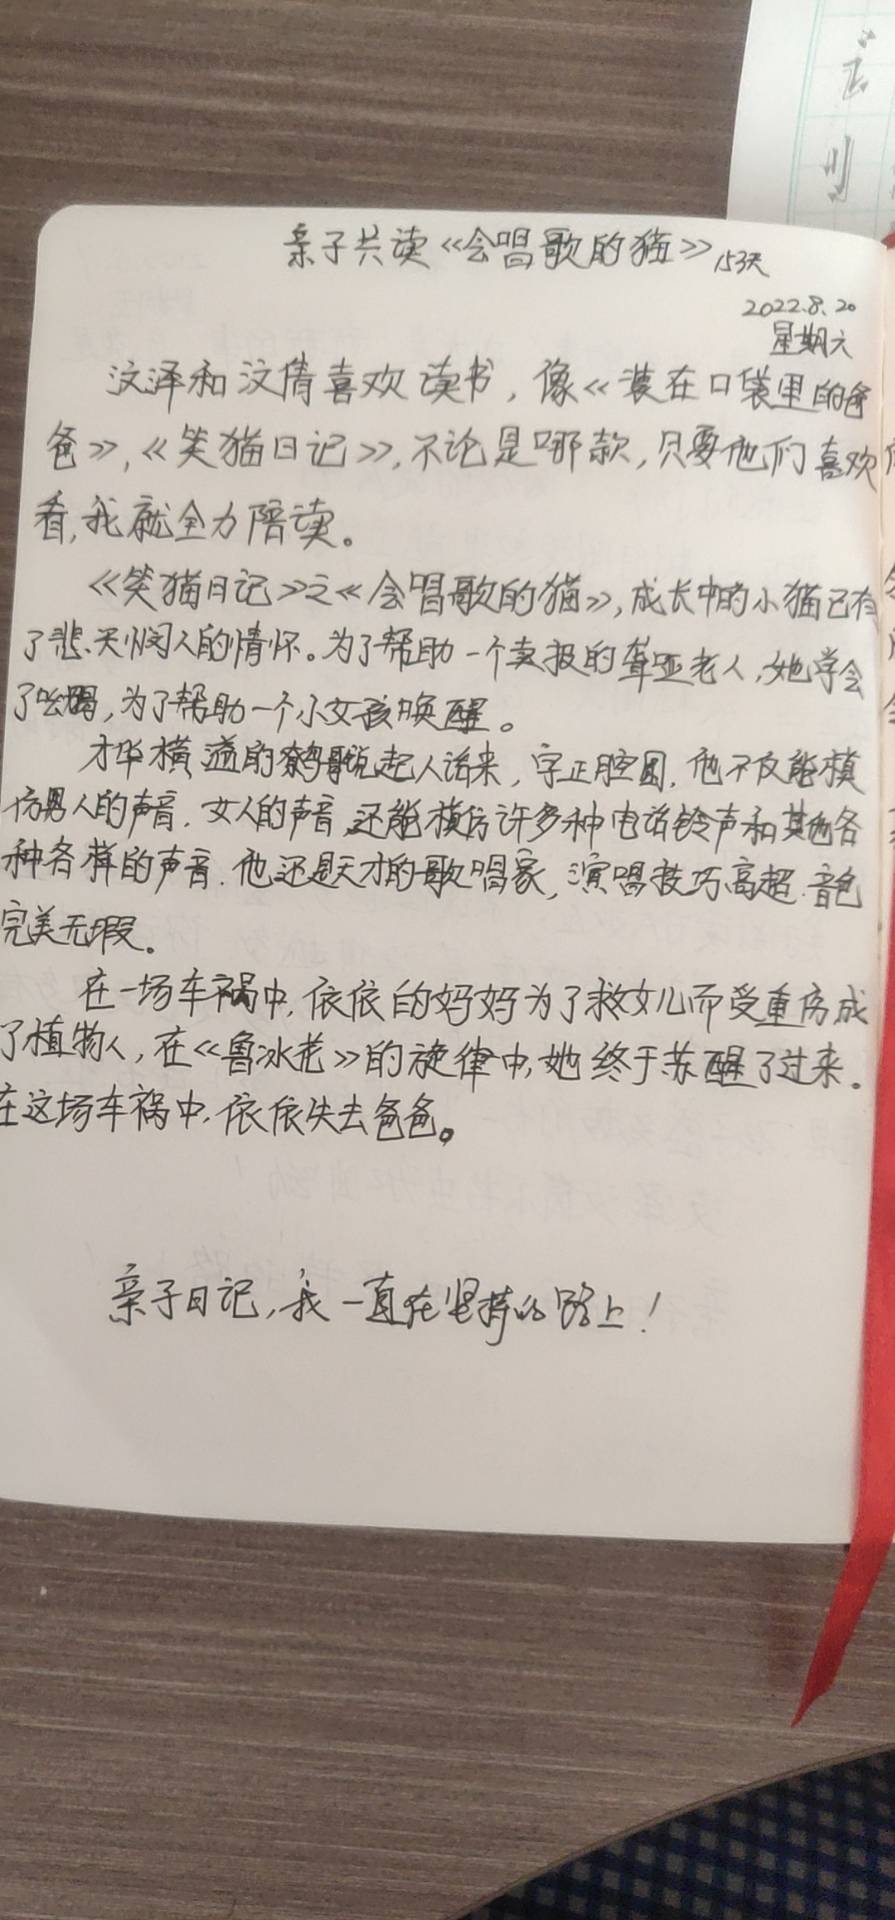 亲子共读《会唱歌的猫》153天
2022.8.20
星期六
汶泽和汶倩喜欢读书，像《装在口袋里的爸
爸》，《笑猫日记》，不论是哪款，只要他们喜欢
看，我就全力陪读。
《笑猫日记》之《会唱歌的猫》，成长中的小猫已有
了悲天悯人的情怀。为了帮助一个卖报的聋哑老人，她学会
了吆喝，为了帮助一个小女孩唤醒。
才华横溢的鹩哥说起人话来，字正腔圆，他不仅能模
仿男人的声音、女人的声音，还能模仿许多种电话铃声和其他各
种各样的声音，他还是天才的歌唱家，演唱技巧高超，音色
完美无瑕。
在一场车祸中，依依的妈妈为了救女儿而受重伤成
了植物人，在《鲁冰花》的旋律中，她终于苏醒了过来。
在这场车祸中，依依失去爸爸。
亲子日记，我一直在坚持的路上！